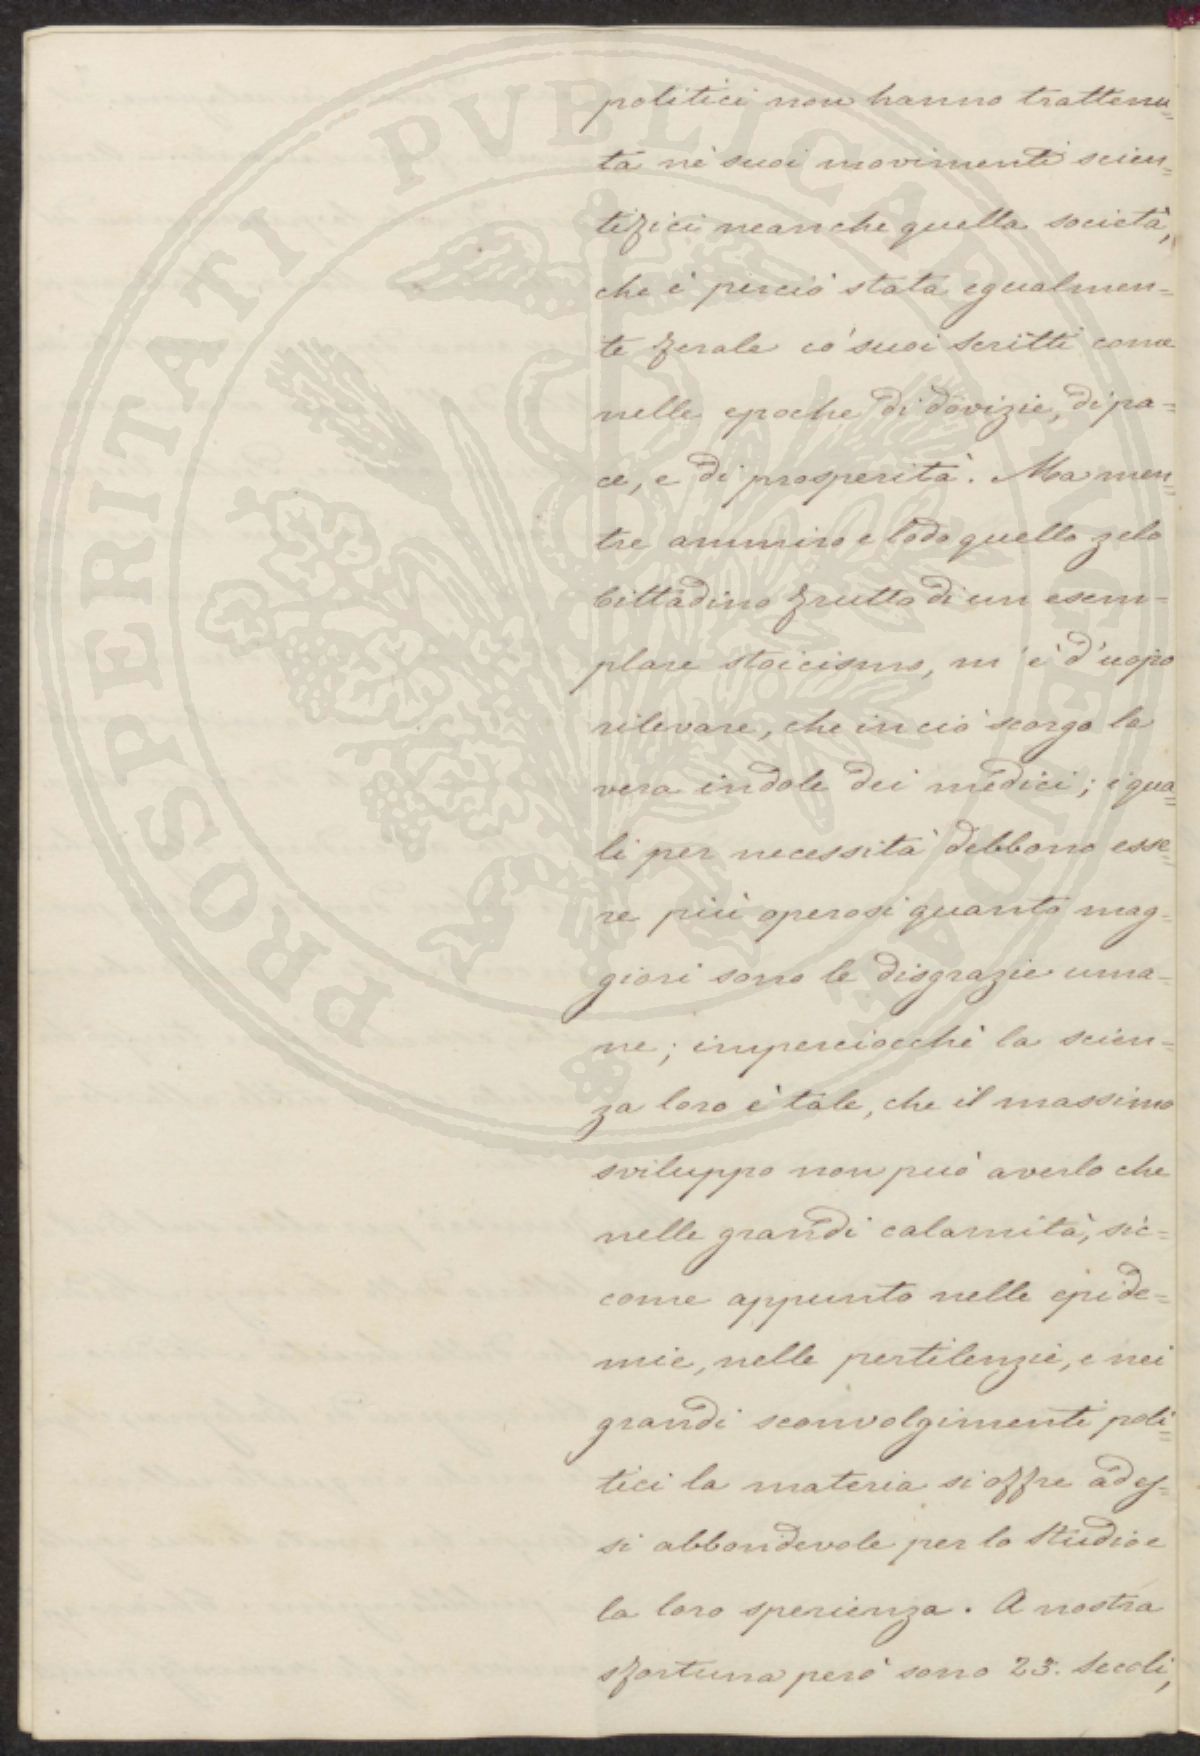 politici non hanno trattenu=
ta nè suoi movimenti scien=
tifici neanche quella società,
che è perciò stata egualmen=
te ferale cò suoi scritti come
nelle epoche di dovizie, di pa=
ce, e di prosperità. Ma men=
tre ammiro e lodo quello zelo
Cittadino frutto di un esem=
plare stoicismo, m'è d'uopo
rilevare, che in ciò scorgo la
vera indole dei medici; i qua=
li per necessità debbono esse=
re più operosi quanto mag=
giori sono le disgrazie uma=
ne; imperciocchè la scien=
za loro è tale, che il massimo
sviluppo non può averlo che
nelle grandi calamità, sic=
come appunto nelle epide=
mie, nelle pestilenzie, e nei
grandi sconvolgimenti poli=
tici la materia si offre ad es=
si abbondevole per lo studio e
la loro sperienza. A nostra
sfortuna però sono 23. Secoli,
PROSPERITATI PVBLICAE AVGENDAE